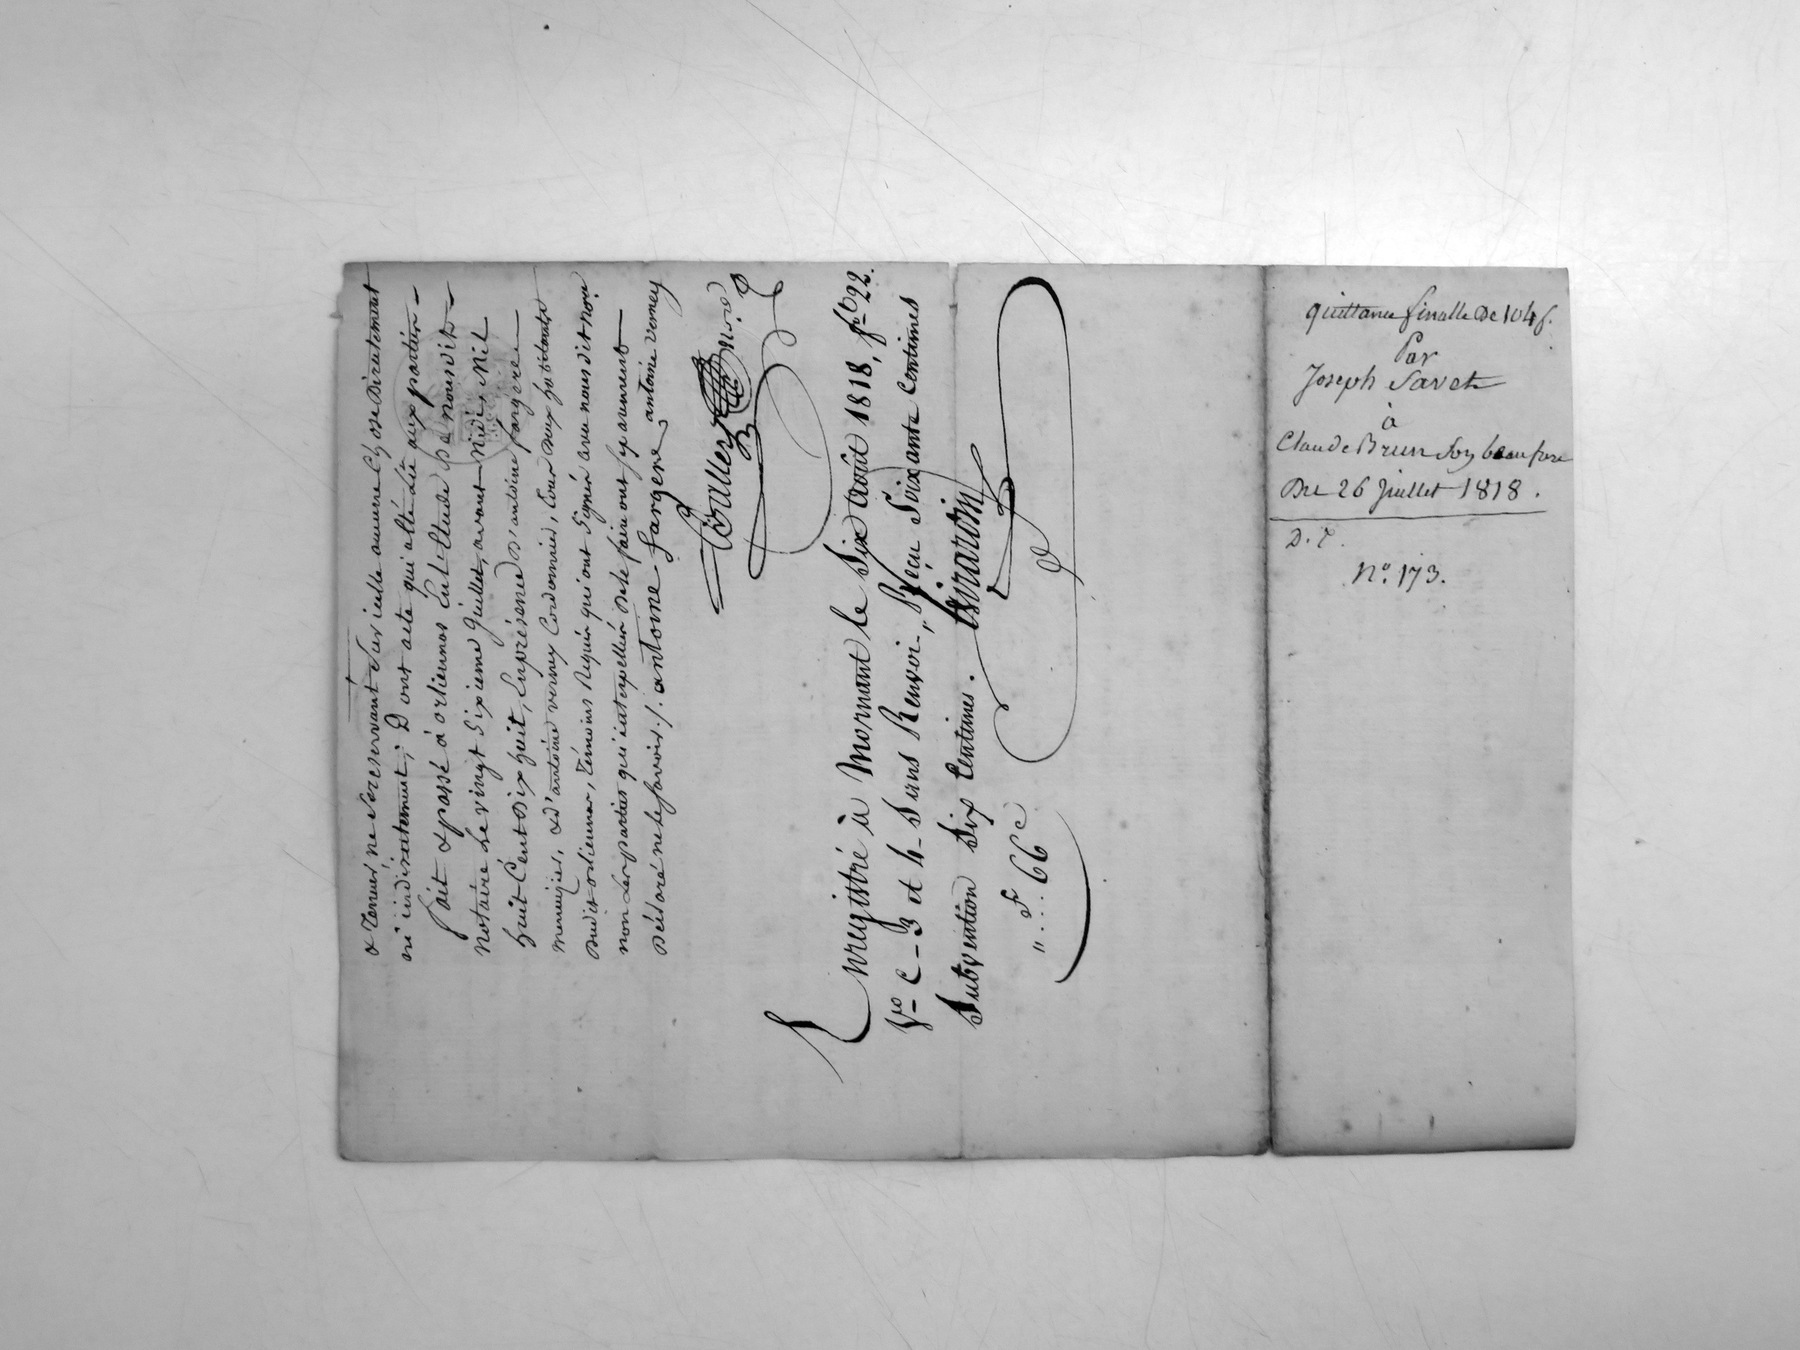 & teneur ne se reservant sur icelle aucune chose directement
ni indirectement; Dont acte qui a été lû aux parties —
fait & passé à orliennas En l'etude de nousdit —
Notaire Le vingt Sixieme Juillet, avant Midi, Mil
huit Cent dix huit, En présence d'antoine fargere —
Menuisier, & d'antoine verney Cordonnier, tous deux habitants
dudit orliennas, témoins Requis qui ont Signés avec nous dit no.re
non Les parties qui interpellées de le faire ont Separement —
Déclaré ne le Savoir ./. antoine fargere antoine verney
no.re
Enregistré à Mornant le Six Août 1818, f.o 22.
V.o C – 3 et 4 – Sans Renvoi „ Reçu Soixante Centimes
Subvention Six Centimes.
„ .... F 66 C
quittance finalle De 104 f.
Par
Joseph Savet
à
Claude Brun Son beaufrere
Du 26 Juillet 1818.
D. T.
N.o 173.